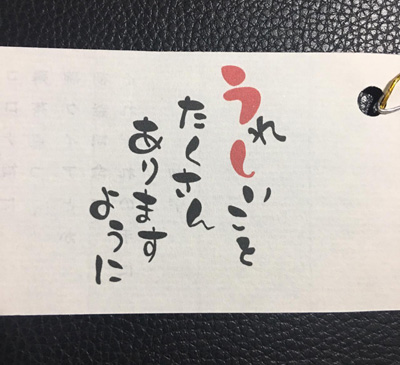 うれしいこと
たくさん
あります
ように